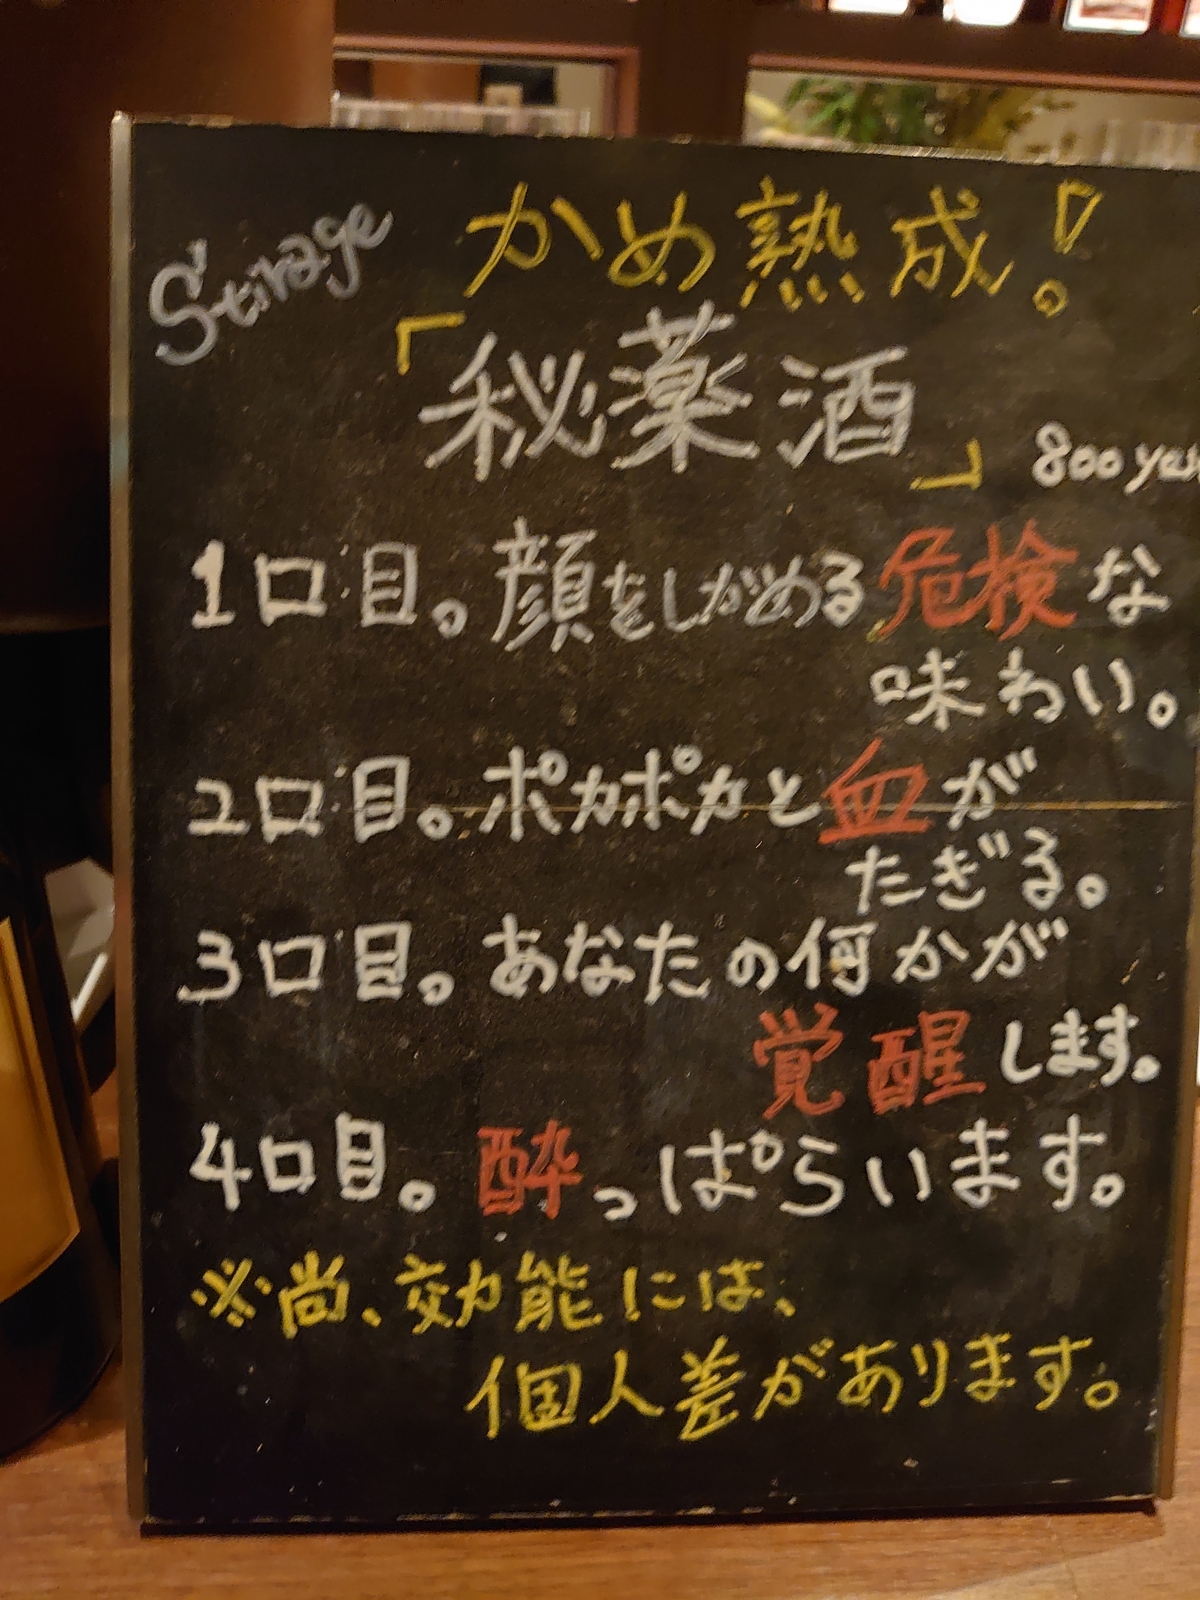 Stirage
かめ熟成!
「秘薬酒」
800 yen
1口目。顔をしがめる危険な
味わい。
2口目。ポカポカと血が
たぎる。
3口目。あなたの何かが
覚醒します。
4口目。酔っぱらいます。
※尚、効能には、
個人差があります。